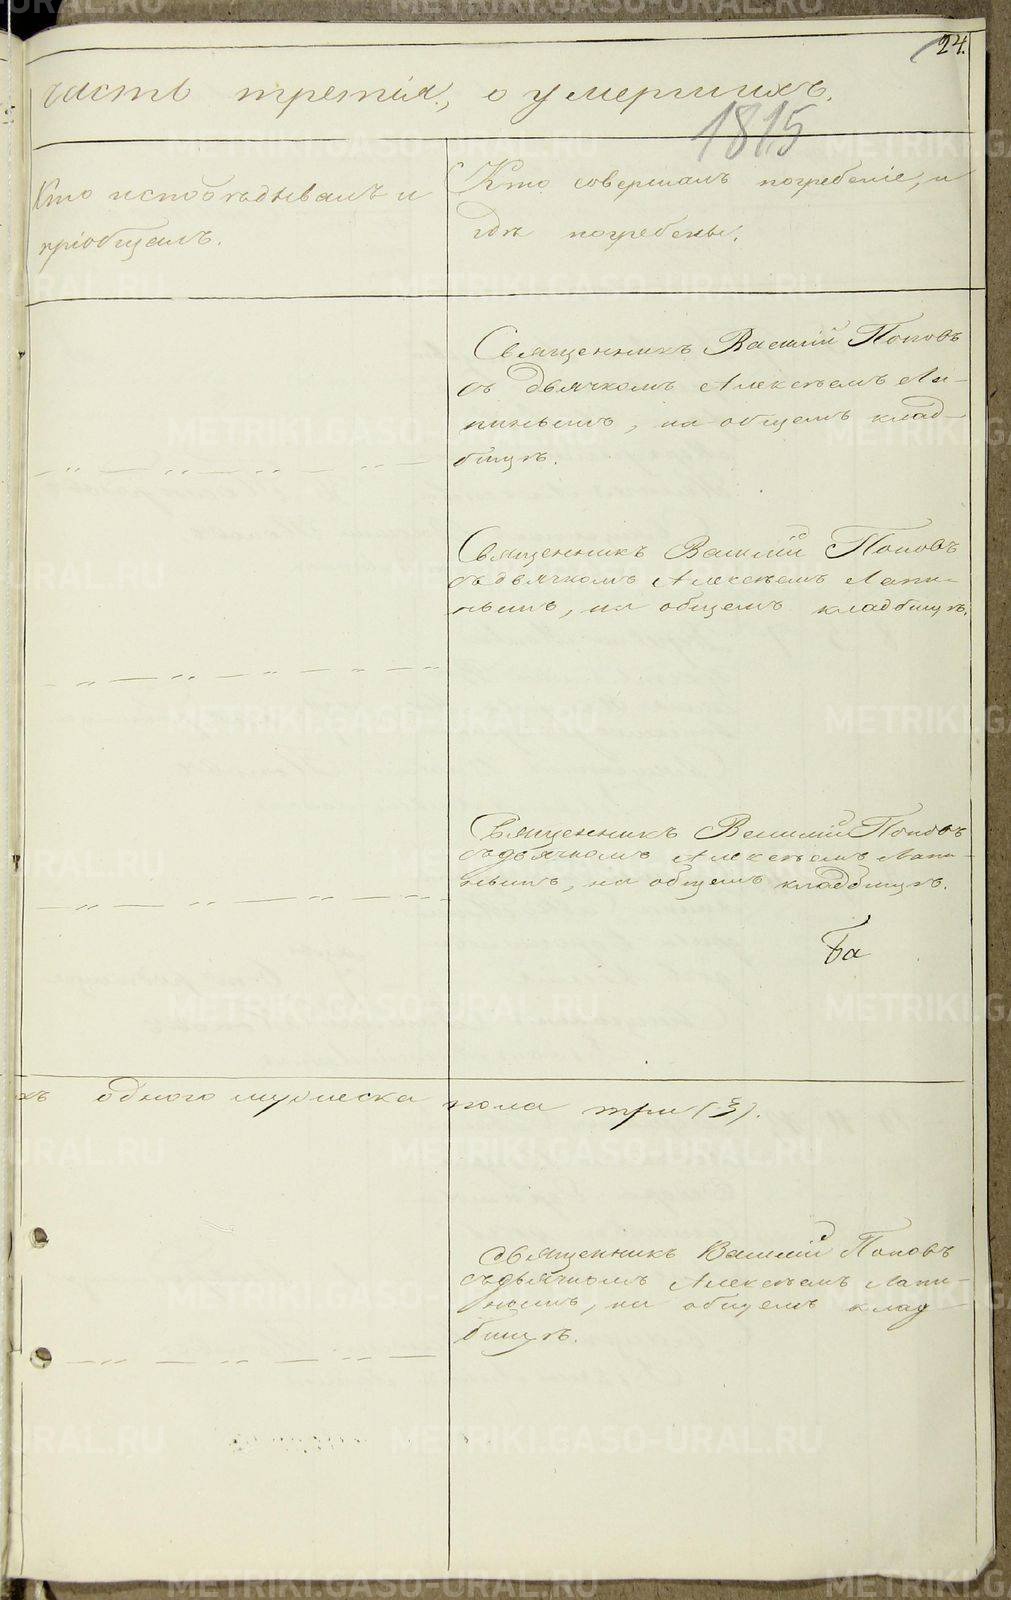 24.
часть третія, о умершихъ.
1815
Кто исповѣдывалъ и
пріобщалъ.
Кто совершалъ погребеніе, и
гдѣ погребены.
Священникъ Василій Поповъ
съ дьячкомъ Алексѣемъ Ла-
пинымъ, на общемъ клад-
бищѣ.
Священникъ Василій Поповъ
съ дьячкомъ Алексѣемъ Лапи-
нымъ, на общемъ кладбищѣ.
Священникъ Василій Поповъ
съ дьячкомъ Алексѣемъ Лапи-
нымъ, на общемъ кладбищѣ.
Ба
хъ одного мужеска пола три (3).
Священникъ Василій Поповъ
съ дьячкомъ Алексѣемъ Лапи-
нымъ, на общемъ клад-
бищѣ.
METRIKI.GASO-URAL.RU